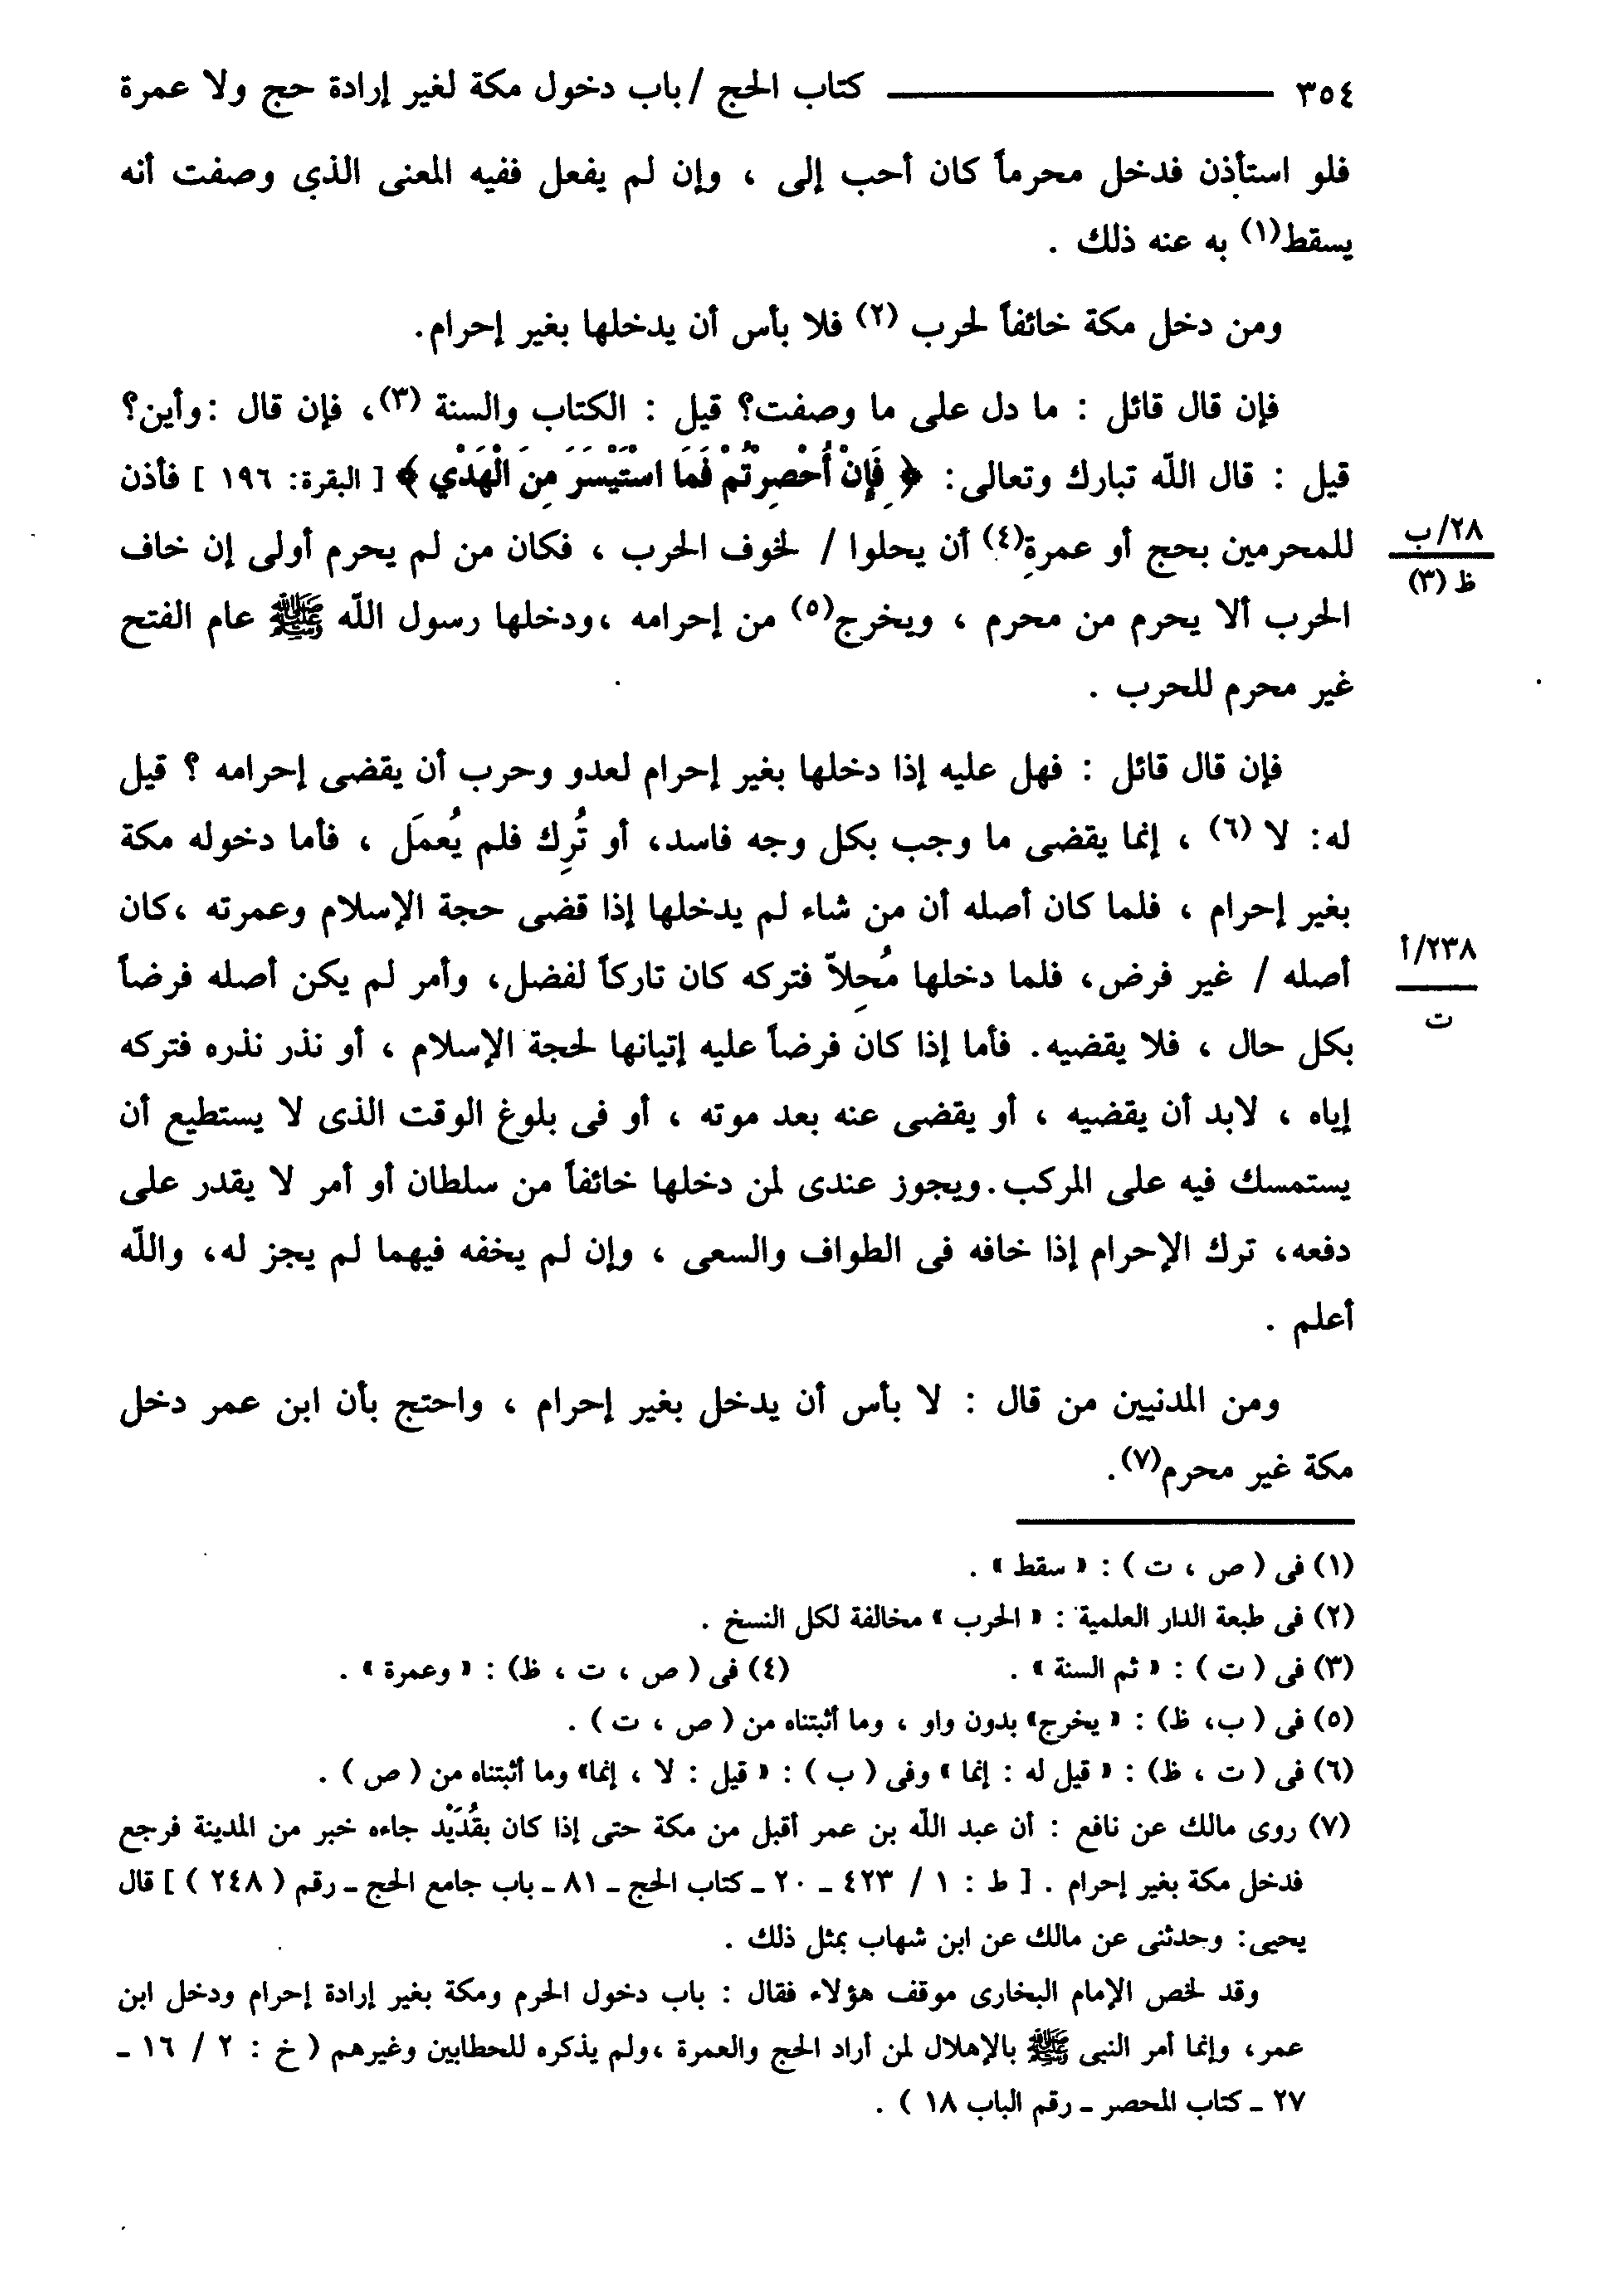 ٣٥٤ ــــــــــــ كتاب الحج / باب دخول مكة لغير إرادة حج ولا عمرة
فلو استأذن فدخل محرماً كان أحب إلى ، وإن لم يفعل ففيه المعنى الذي وصفت أنه
يسقط(١) به عنه ذلك .
ومن دخل مكة خائفاً لحرب (٢) فلا بأس أن يدخلها بغير إحرام.
فإن قال قائل : ما دل على ما وصفت؟ قيل : الكتاب والسنة (٣)، فإن قال :وأين؟
قيل : قال اللّه تبارك وتعالى: ﴿ فَإِنْ أُحْصِرْتُمْ فَمَا اسْتَيْسَرَ مِنَ الْهَدْيِ ﴾ [ البقرة: ١٩٦ ] فأذن
للمحرمين بحج أو عمرةِ(٤) أن يحلوا / لخوف الحرب ، فكان من لم يحرم أولى إن خاف
٢٨/ب
ظ (٣)
الحرب ألا يحرم من محرم ، ويخرج(٥) من إحرامه ،ودخلها رسول اللّه ﷺ عام الفتح
غير محرم للحرب .
فإن قال قائل : فهل عليه إذا دخلها بغير إحرام لعدو وحرب أن يقضى إحرامه ؟ قيل
له: لا (٦) ، إنما يقضى ما وجب بكل وجه فاسد، أو تُرِك فلم يُعمَل ، فأما دخوله مكة
بغير إحرام ، فلما كان أصله أن من شاء لم يدخلها إذا قضى حجة الإسلام وعمرته ،كان
أصله / غير فرض، فلما دخلها مُحِلاّ فتركه كان تاركاً لفضل، وأمر لم يكن أصله فرضاً
٢٣٨/أ
ت
بكل حال ، فلا يقضيه. فأما إذا كان فرضاً عليه إتيانها لحجة الإسلام ، أو نذر نذره فتركه
إياه ، لابد أن يقضيه ، أو يقضى عنه بعد موته ، أو فى بلوغ الوقت الذى لا يستطيع أن
يستمسك فيه على المركب.ويجوز عندى لمن دخلها خائفاً من سلطان أو أمر لا يقدر على
دفعه، ترك الإحرام إذا خافه فى الطواف والسعى ، وإن لم يخفه فيهما لم يجز له، واللّه
أعلم .
ومن المدنيين من قال : لا بأس أن يدخل بغير إحرام ، واحتج بأن ابن عمر دخل
مكة غير محرم(٧).
(١) فى ( ص ، ت ) : « سقط » .
(٢) فى طبعة الدار العلمية : « الحرب » مخالفة لكل النسخ .
(٣) فى ( ت ) : « ثم السنة » . (٤) فى ( ص ، ت ، ظ) : « وعمرة » .
(٥) فى ( ب، ظ) : « يخرج» بدون واو ، وما أثبتناه من ( ص ، ت ) .
(٦) فى ( ت ، ظ) : « قيل له : إنما » وفى ( ب ) : « قيل : لا ، إنما» وما أثبتناه من ( ص ) .
(٧) روى مالك عن نافع : أن عبد اللّه بن عمر أقبل من مكة حتى إذا كان بقُدَيْد جاءه خبر من المدينة فرجع
فدخل مكة بغير إحرام . [ ط : ١ / ٤٢٣ ـ ٢٠ ـ كتاب الحج ـ ٨١ ـ باب جامع الحج ـ رقم ( ٢٤٨ ) ] قال
يحيى: وحدثنى عن مالك عن ابن شهاب بمثل ذلك .
وقد لخص الإمام البخارى موقف هؤلاء فقال : باب دخول الحرم ومكة بغير إرادة إحرام ودخل ابن
عمر، وإنما أمر النبى ﷺ بالإهلال لمن أراد الحج والعمرة ،ولم يذكره للحطابين وغيرهم ( خ : ٢ / ١٦ ـ
٢٧ ـ كتاب المحصر ـ رقم الباب ١٨ ) .